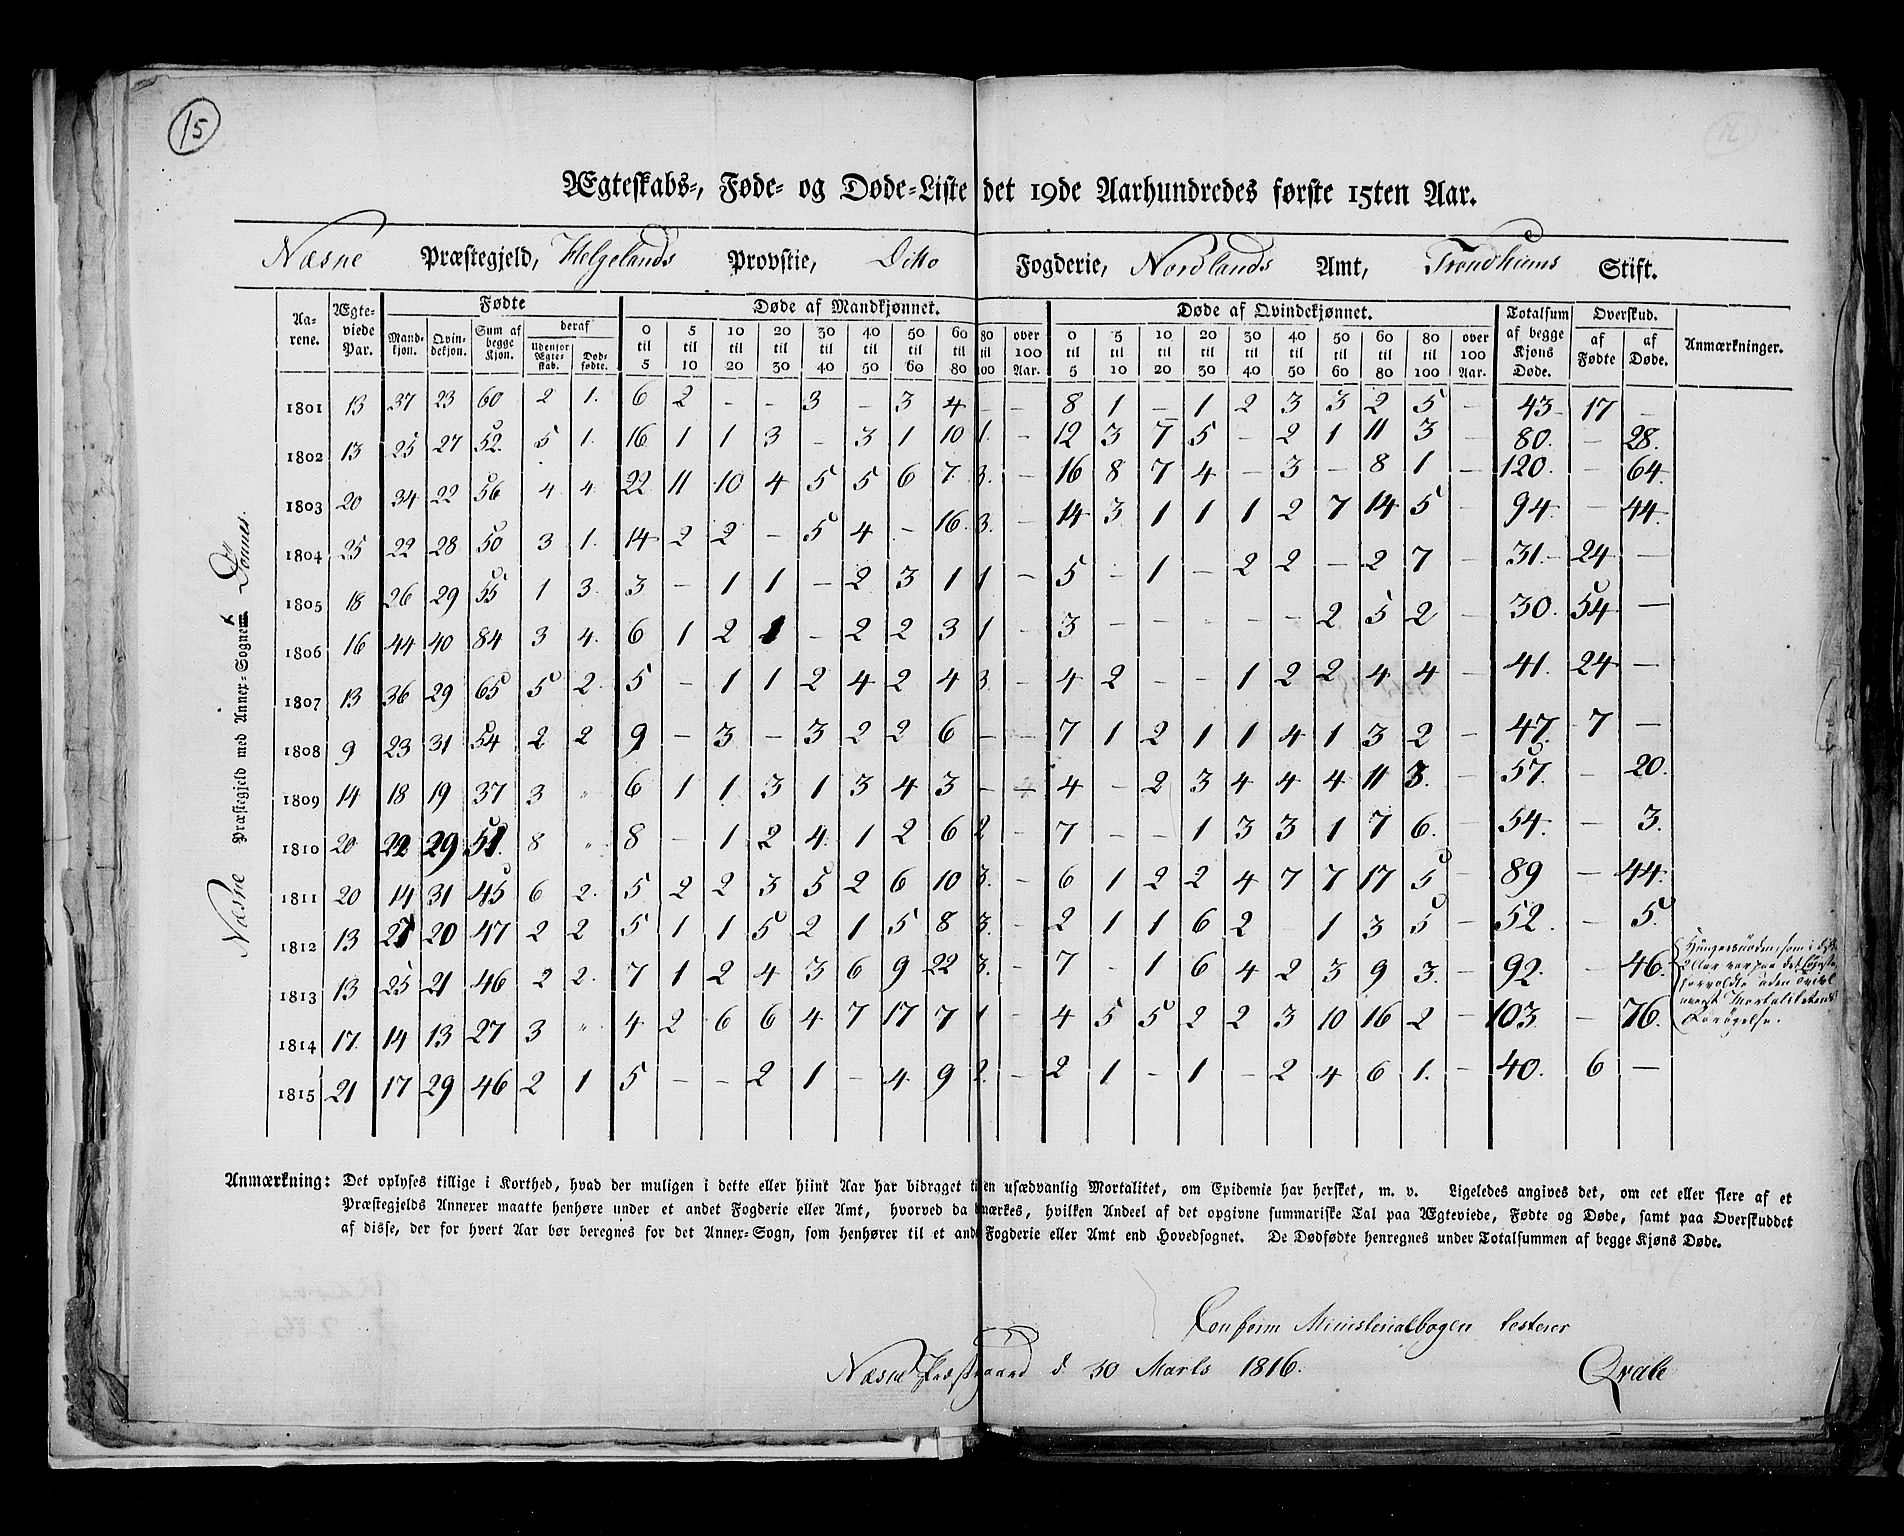 15
Ægteskabs-, Føde- og Døde-Liste det 19de Aarhundredes første 15ten Aar.
Næsne Præstegjeld, Helgelands Provstie, Ditto Fogderie, Nordlands Amt, Trondhiems Stift.
Næsne Præstegjeld med Annex-Sogne Dönnes.
Aa-rene. | Ægte-viede Par. | Fødte | Døde af Mandkjønnet. | Døde af Qvindekjønnet. | Totalsum af begge Kjøns Døde. | Overskud. | Anmærkninger.
Mand-kjøn. | Qvin-dekjøn. | Sum af begge Kjøn. | deraf | Udenfor Ægte-skab. | Død-fødte. | 0 til 5 | 5 til 10 | 10 til 20 | 20 til 30 | 30 til 40 | 40 til 50 | 50 til 60 | 60 til 80 | 80 til 100 | over 100 Aar. | 0 til 5 | 5 til 10 | 10 til 20 | 20 til 30 | 30 til 40 | 40 til 50 | 50 til 60 | 60 til 80 | 80 til 100 | over 100 Aar. | af Fødte | af Døde.
1801 13 37 23 60 2 1. 6 2 - - 3 - 3 4 - - 8 1 - 1 2 3 3 2 5 - 43 17 -
1802 13 25 27 52. 5 1. 16 1 1 3 - 3 1 10 1. - 12 3 7 5 - 2 1 11 3 - 80. - 28.
1803 20 34 22 56 4 4. 22 11 10 4 5 5 6 7. 3. - 16 8 7 4 - 3 - 8 1 - 120. - 64
1804 25 22 28 50 3 1. 14 2 2 - 5 4 - 16. 3. - 14 3 1 1 1 2 7 14 5 - 94 - 44.
1805 18 26 29 55 1 3. 3 - 1 1 - 2 3 1 1 - 5 - 1 - 2 2 - 2 7 - 31. 24 -
1806 16 44 40 84 3 4. 6 1 2 1 - 2 2 3 1 - 3 - - - - - 2 5 2 - 30. 54 -
1807 13 36 29 65 5 2. 5 - 1 1 2 4 2 4 3 - 4 2 - - 1 2 2 4 4 - 41. 24 -
1808 9 23 31 54 2 2 9 - 3 - 3 2 2 6 - - 7 1 2 1 1 4 1 3 2 - 47. 7 -
1809 14 18 19 37 3 " 6 1 1 3 1 3 4 3 - - 4 - 2 3 4 4 4 11 3. - 57. - 20.
1810 20 22 29 51. 8 " 8 - 1 2 4 1 2 6 2 - 7 - - 1 3 3 1 7 6. - 54. - 3.
1811 20 14 31 45 6 2. 5 2 2 3 5 2 6 10 3. - 6 1 2 2 4 7 7 17 5 - 89 - 44.
1812 13 27 20 47 2 2 5 1 1 5 2 1 5 8 3. - 2 1 1 6 2 1 3 5 - 52. - 5.
1813 13 25 21 46 2 2. 7 1 2 4 3 6 9 22 3. - 7 - 1 6 4 2 3 9 3. - 92. - 46.
1814 17. 14 13 27 3 " 4 2 6 6 4 7 17 7 1 - 4 5 5 2 2 3 10 16 2 - 103 - 76.
1815 21 17 29 46 2 1 5 - - 2 1 - 4 9 2. - 2 1 - 1 - 2 4 6 1. - 40. 6 -
Hungersnöden, som i
2 Aar var paa det
forvoldte uden
Mortalitetens
Forögelse.
Anmærkning: Det oplyses tillige i Korthed, hvad der muligen i dette eller hiint Aar har bidraget til en usædvanlig Mortalitet, om Epidemie har hersket, m. v. Ligeledes angives det, om eet eller flere af et
Præstegjelds Annexer maatte henhøre under et andet Fogderie eller Amt, hvorved da bemærkes, hvilken Andeel af det opgivne summariske Tal paa Ægteviede, Fødte og Døde, samt paa Overskuddet
af disse, der for hvert Aar bør beregnes for det Annex-Sogn, som henhører til et andet Fogderie eller Amt end Hovedsognet. De Dødfødte henregnes under Totalsummen af begge Kjøns Døde.
Conform Ministerialbogen testerer
Næsne Præstegaard d. 30 Marts 1816. Qvale